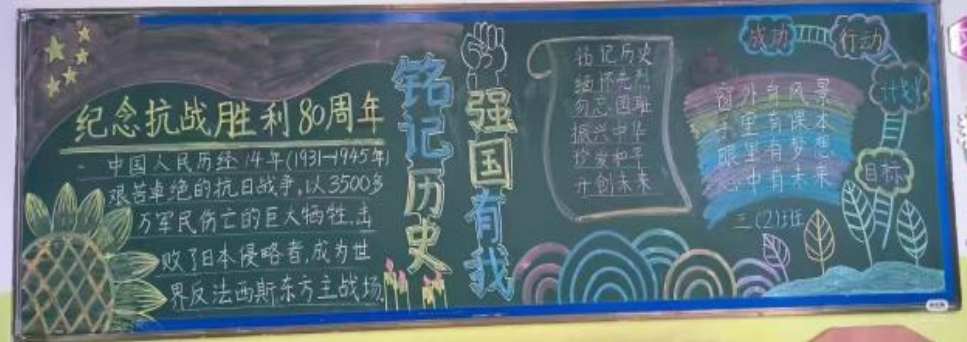 纪念抗战胜利80周年
中国人民历经14年(1931-1945年)
艰苦卓绝的抗日战争,以3500多
万军民伤亡的巨大牺牲,击
败了日本侵略者,成为世
界反法西斯东方主战场.
铭记历史
强国有我
铭记历史
缅怀先烈
勿忘国耻
振兴中华
珍爱和平
开创未来
成功
行动
计划
目标
窗外有风景
手里有课本
眼里有梦想
心中有未来
三(2)班